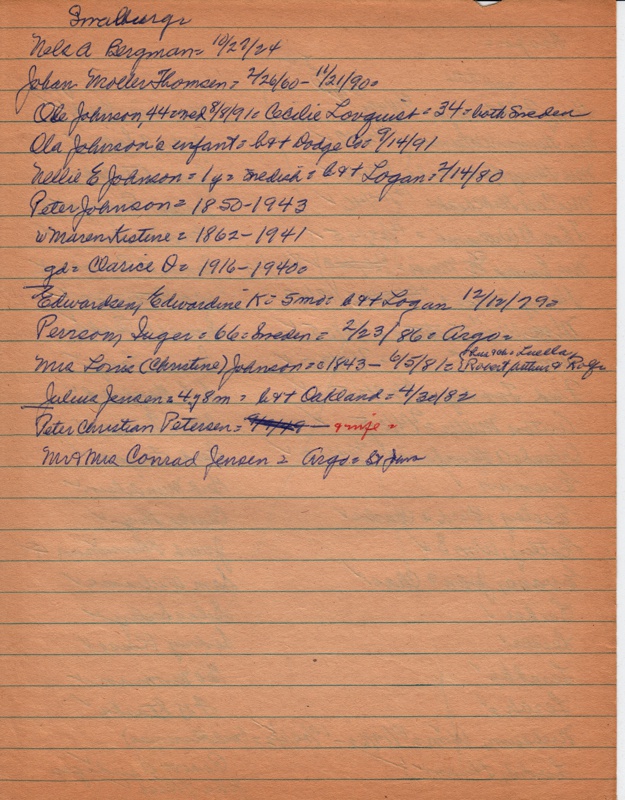 Smalburg
Nels A Bergman = 10/27/24
Johan Moller Thomsen = 2/26/60 - 11/21/90 =
Ole Johnson, 44 = med 8/8/91 = Cecilie Lovquist = 34 = both Sweden
Ola Johnson's infant = b&t Dodge Co = 9/14/91
Nellie E Johnson = 1y = Swedish = b&t Logan = 2/14/80
Peter Johnson = 1850-1943
w Maren Kistine = 1862-1941
gd = Clarice O = 1916-1940 =
Edwardsen, Edwardine K = 5mo = b&t Logan 12/12/79 =
Perrson, Inger = 66 = Sweden = 2/23/86 = Argo =
Mrs Louis (Christine) Johnson = 1843 - 6/5/81 = Luella, Robert Arthur & Rolf
Julius Jensen = 4y8m = b&t Oakland = 4/30/82
Peter Christian Petersen = 9/9/49 - & wife =
Mr & Mrs Conrad Jensen = Argo =